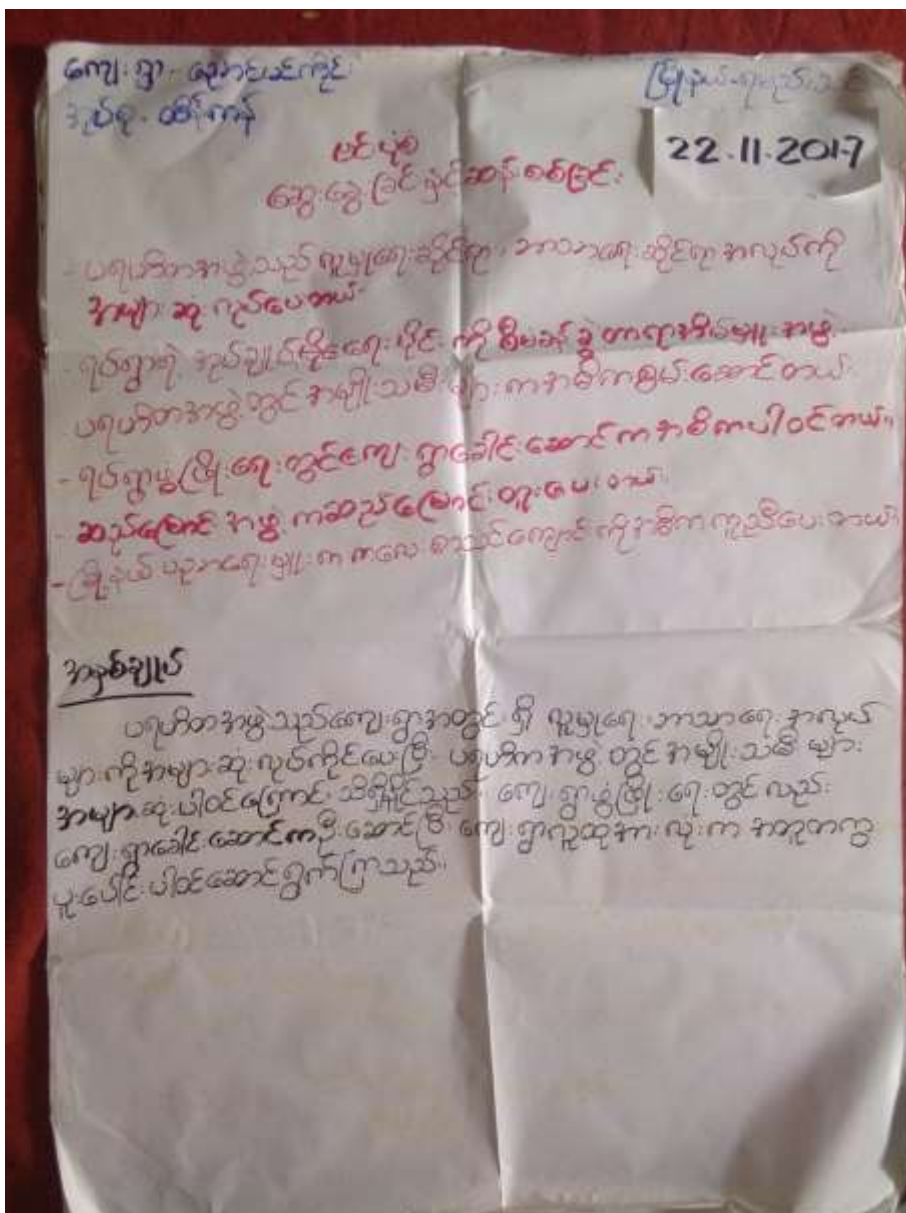 ကျေးရွာ - ညောင်ပင်ကိုင်း
အုပ်စု - ထိန်ကန်
မြို့နယ် - ရမည်းသင်း
22.11.2017
ပင်ပုံစံ
ဆွေးနွေးခြင်းနှင့်ဆန်းစစ်ခြင်း
- ပရဟိတအဖွဲ့သည် လူမှုရေးဆိုင်ရာ၊ ဘာသာရေးဆိုင်ရာ အလုပ်ကို
အများဆုံးလုပ်ပေးတယ်။
- ရပ်ရွာရဲ့ အုပ်ချုပ်မှုရေးပိုင်းကို စီမံခန့်ခွဲတာ ရာအိမ်မှူးအဖွဲ့
ပရဟိတအဖွဲ့တွင် အမျိုးသမီးများကအဓိကစွမ်းဆောင်တယ်။
- ရပ်ရွာဖွံ့ဖြိုးရေးတွင်ကျေးရွာခေါင်းဆောင်ကအဓိကပါဝင်တယ်။
- ဆည်မြောင်းအဖွဲ့ကဆည်မြောင်းတူးပေးတယ်။
- မြို့နယ်ပညာရေးမှူးက ကလေးစာသင်ကျောင်းကိုအဓိကကူညီပေးတယ်။
အနှစ်ချုပ်
ပရဟိတအဖွဲ့သည်ကျေးရွာအတွင်းရှိ လူမှုရေး၊ဘာသာရေး အလုပ်
များကိုအများဆုံးလုပ်ကိုင်ပေးပြီး ပရဟိတအဖွဲ့တွင် အမျိုးသမီးများ
အများဆုံးပါဝင်ကြောင်း သိရှိနိုင်သည်။ ကျေးရွာဖွံ့ဖြိုးရေးတွင်လည်း
ကျေးရွာခေါင်းဆောင်ကဦးဆောင်ပြီး ကျေးရွာလူထုအားလုံးက အတူတကွ
ပူးပေါင်းပါဝင်ဆောင်ရွက်ကြသည်။